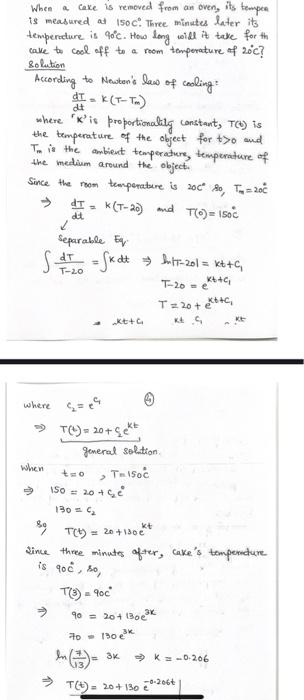 When a cake is removed from an oven, its tempera
is measured at 150C°. Three minutes later its
temperature is 90°C. How long will it take for th
cake to cool off to a room temperature of 20°C?
Solution
According to Newton's law of cooling:
dT/dt = K(T-Tm)
where "K" is proportionality constant, T(t) is
the temperature of the object for t>0 and
Tm is the ambient temperature, temperature of
the medium around the object.
Since the room temperature is 20C° so, Tm=20°C
⇒ dT/dt = K(T-20) and T(0)=150°C
↓
Separable Eq.
∫ dT/T-20 = ∫K dt ⇒ ln|T-20| = kt+C₁
T-20 = e^kt+C₁
T = 20 + e^kt+C₁
where C₂ = e^C₁
⇒ T(t) = 20 + C₂e^kt
general solution.
When t=0 , T=150°C
⇒ 150 = 20 + C₂e°
130 = C₂
So T(t) = 20 + 130e^kt
Since three minutes after, cake's temperature
is 90°C, so,
T(3) = 90C°
⇒ 90 = 20 + 130e^3K
70 = 130e^3K
ln(7/13) = 3K ⇒ K = -0.206
⇒ T(t) = 20 + 130 e^-0.206t